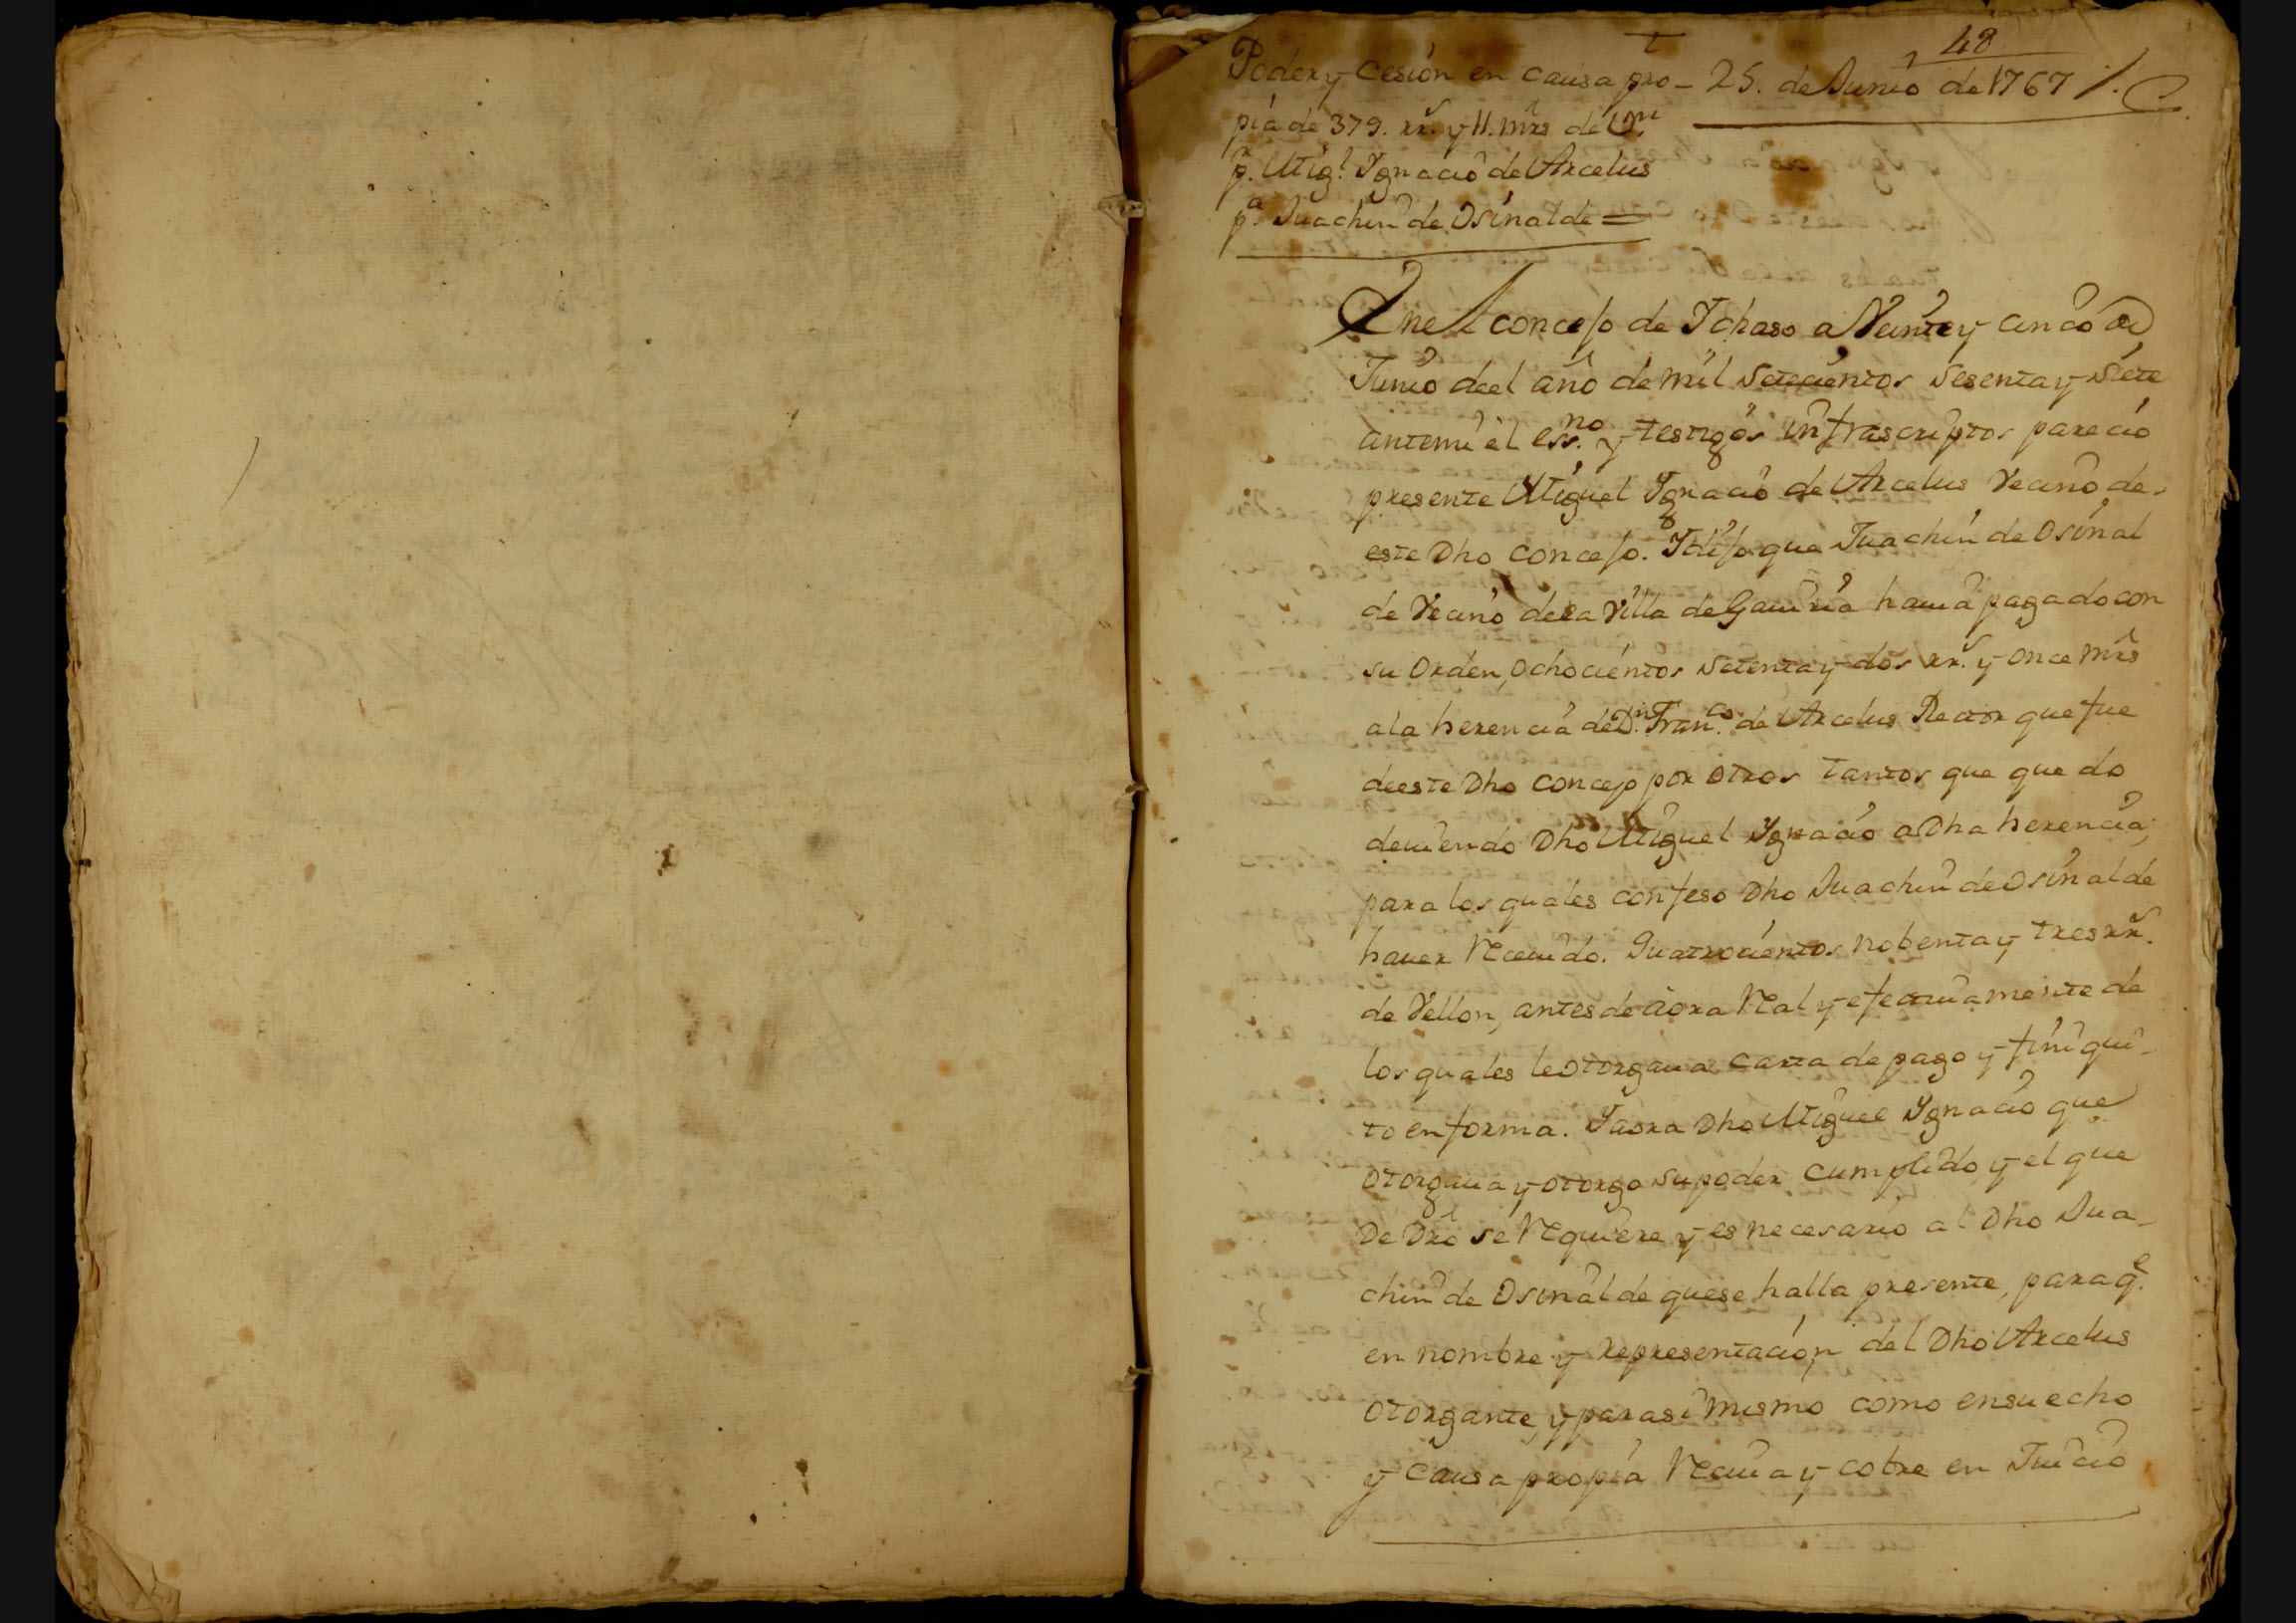 48
Poder y Cesión en causa pro- 25. de Junio de 1767
pia de 379. rr.s y 11. mrs de Vn.
pr. Migl. Ygnacio de Arcelus
pa. Juachin de Osinalde =
En el concejo de Ychaso a Veinte y cinco de
Junio de el año de mil Setecientos Sesenta y Siete
ante mi el essno. y testigos infrascriptos parecio
presente Miguel Ygnacio de Arcelus Vecino de-
este Dho concejo. Y dijo que Juachin de Osinal
de Vecino de la Villa de Gauiria hauia pagado con
su Orden, Ochocientos Setenta y dos rr.s y once mrs
a la herencia de Dn. Franco. de Arcelus Rector que fue
de este Dho concejo por otros tantos que quedo
deuiendo Dho Miguel Ygnacio a Dha herencia,
para los quales confeso Dho Juachin de Osinalde
hauer Receuido. Quatrocientos nobenta y tres rr.s
de Vellon, antes de aora Real y efectiuamente de
los quales le otorgaua carta de pago y finiqui-
to en forma. Y aora Dho Miguel Ygnacio que
otorgaua y otorgo su poder cumplido, y el que
De Dro se Requiere y es necesario al Dho Jua-
chin de Osinalde que se halla presente, para qe.
en nombre y representación del Dho Arcelus
otorgante, y para si mismo como en su echo
y causa propia Reciua y cobre en Juicio